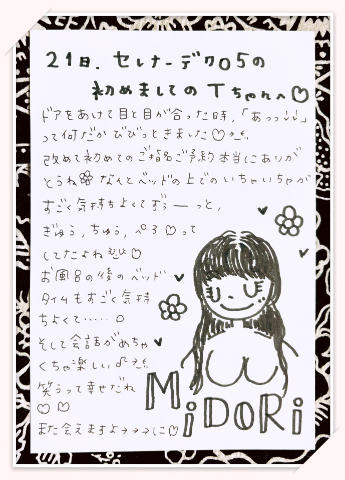 21日. セレナーデ905の
初めましての Tちゃんへ♡
ドアをあけて目と目が合った時,「あっっ↓↓」
って何だかびびっときました♡
改めて初めてのご指名ご予約本当にありが
とうね なんとベッドの上でのいちゃいちゃが
すごく気持ちよくてずぅーっと,
ぎゅう, ちゅう, ぺろ♡って
してたよね ♡
お風呂の後のベッド
タイムもすごく気持
ちよくて……○
そして会話がめちゃ
くちゃ楽しい♪
笑うって幸せだね
♡ ♡
また会えますよ→→→に♡
MiDORi